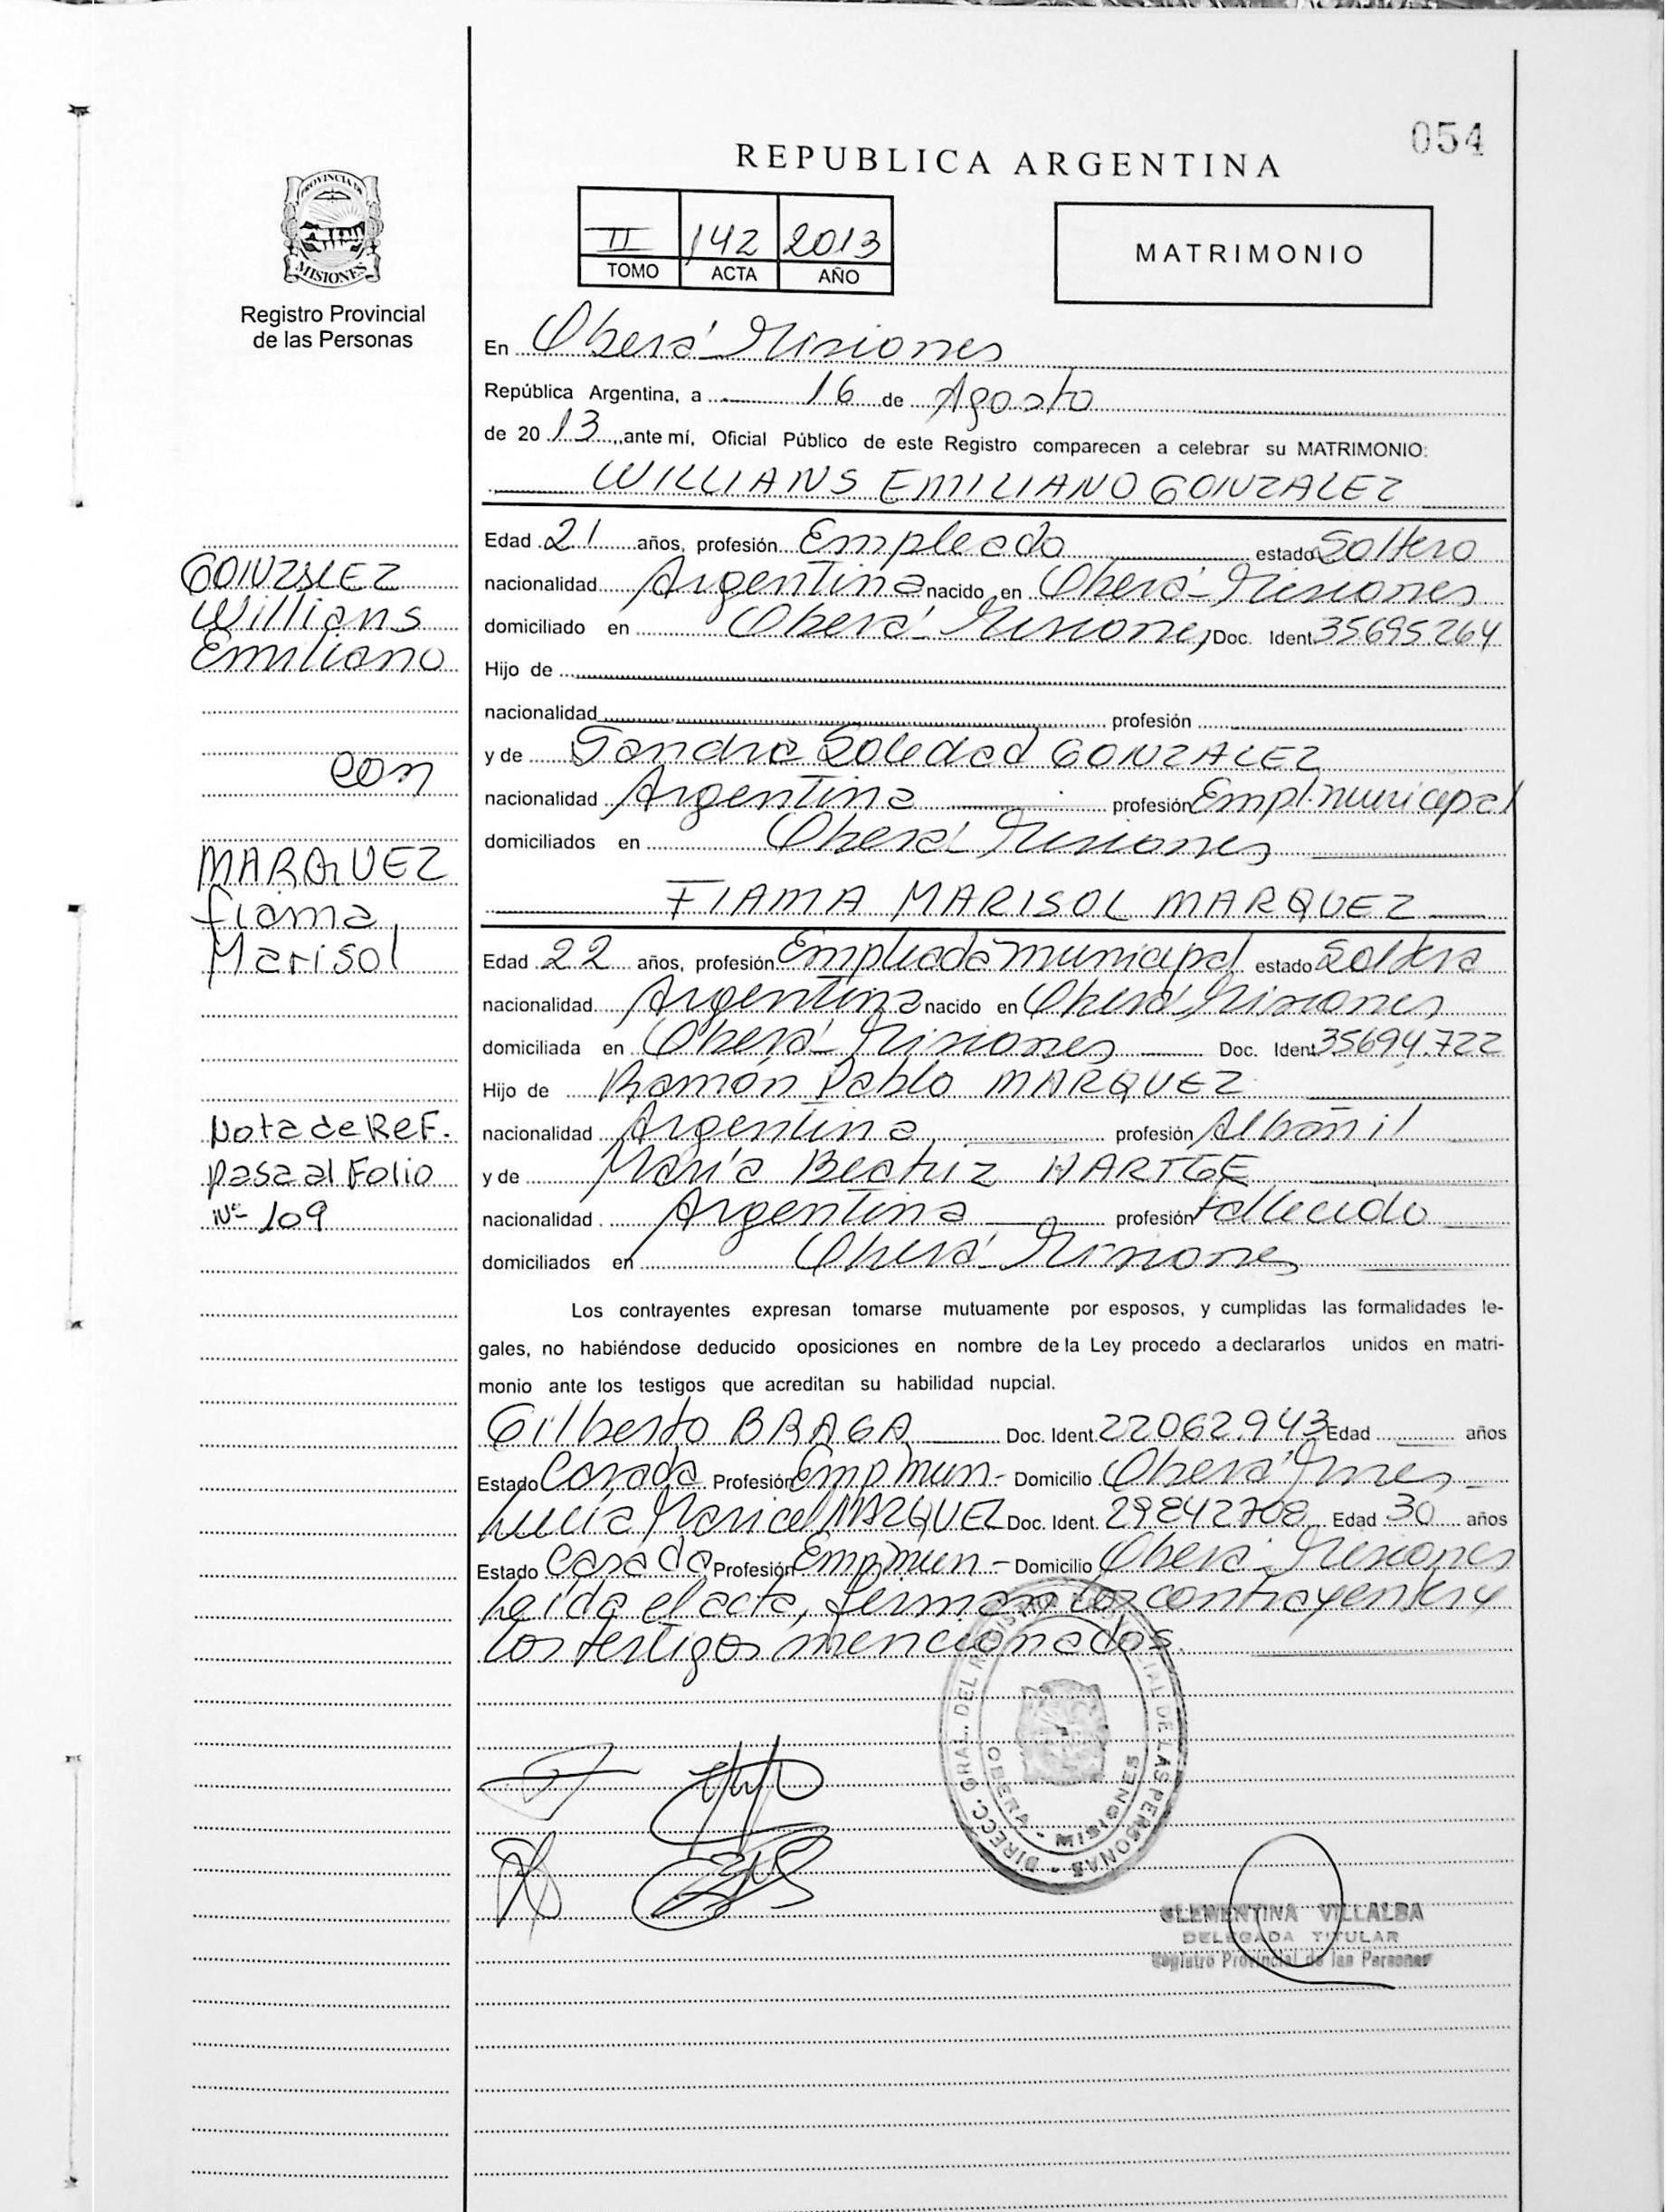 054
REPUBLICA ARGENTINA
PROVINCIA DE
MISIONES
Registro Provincial
de las Personas
II 142 2013
TOMO ACTA AÑO
MATRIMONIO
En Oberá - Misiones
República Argentina, a 16 de Agosto
de 20 13, ante mí, Oficial Público de este Registro comparecen a celebrar su MATRIMONIO:
WILLIANS EMILIANO GONZALEZ
Edad 21 años, profesión Empleado estado Soltero
nacionalidad Argentina nacido en Oberá - Misiones
domiciliado en Oberá - Misiones Doc. Ident. 35695.264
Hijo de
nacionalidad profesión
y de Sandra Soledad GONZALEZ
nacionalidad Argentina profesión Empl. municipal
domiciliados en Oberá - Misiones
FIAMA MARISOL MARQUEZ
Edad 22 años, profesión Empleada municipal estado Soltera
nacionalidad Argentina nacido en Oberá - Misiones
domiciliada en Oberá - Misiones Doc. Ident. 35694.722
Hijo de Ramón Pablo MARQUEZ
nacionalidad Argentina profesión Albañil
y de María Beatriz HARTGE
nacionalidad Argentina profesión Fallecido
domiciliados en Oberá - Misiones
Los contrayentes expresan tomarse mutuamente por esposos, y cumplidas las formalidades le-
gales, no habiéndose deducido oposiciones en nombre de la Ley procedo a declararlos unidos en matri-
monio ante los testigos que acreditan su habilidad nupcial.
Gilberto BRAGA Doc. Ident. 22062.943 Edad años
Estado Casada Profesión Emp mun.- Domicilio Oberá Mnes
Lucía Maricel MARQUEZ Doc. Ident. 29842708 Edad 30 años
Estado Casada Profesión Emp mun - Domicilio Oberá - Misiones
Leída el acta, firman los contrayentes y
los testigos mencionados.
GONZALEZ
Willians
Emiliano
con
MARQUEZ
Fiama
Marisol
Nota de Ref.
pasa al Folio
Nº 109
DIRECC. GRAL. DEL REGISTRO PROVINCIAL DE LAS PERSONAS
OBERA - MISIONES
CLEMENTINA VILLALBA
DELEGADA TITULAR
Registro Provincial de las Personas